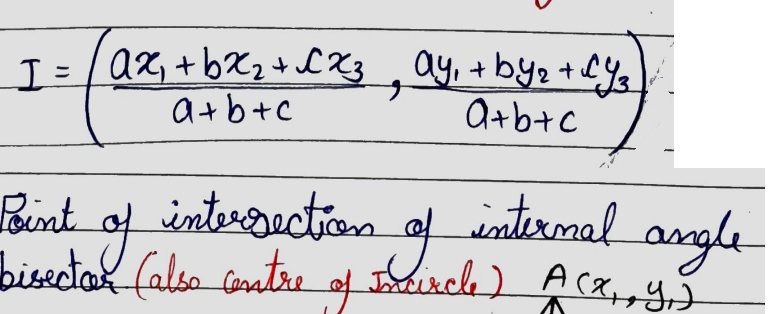 I = ( ax₁ + bx₂ + cx₃ / a+b+c , ay₁ + by₂ + cy₃ / a+b+c )
Point of intersection of internal angle
bisector (also centre of Incircle) A(x₁, y₁)